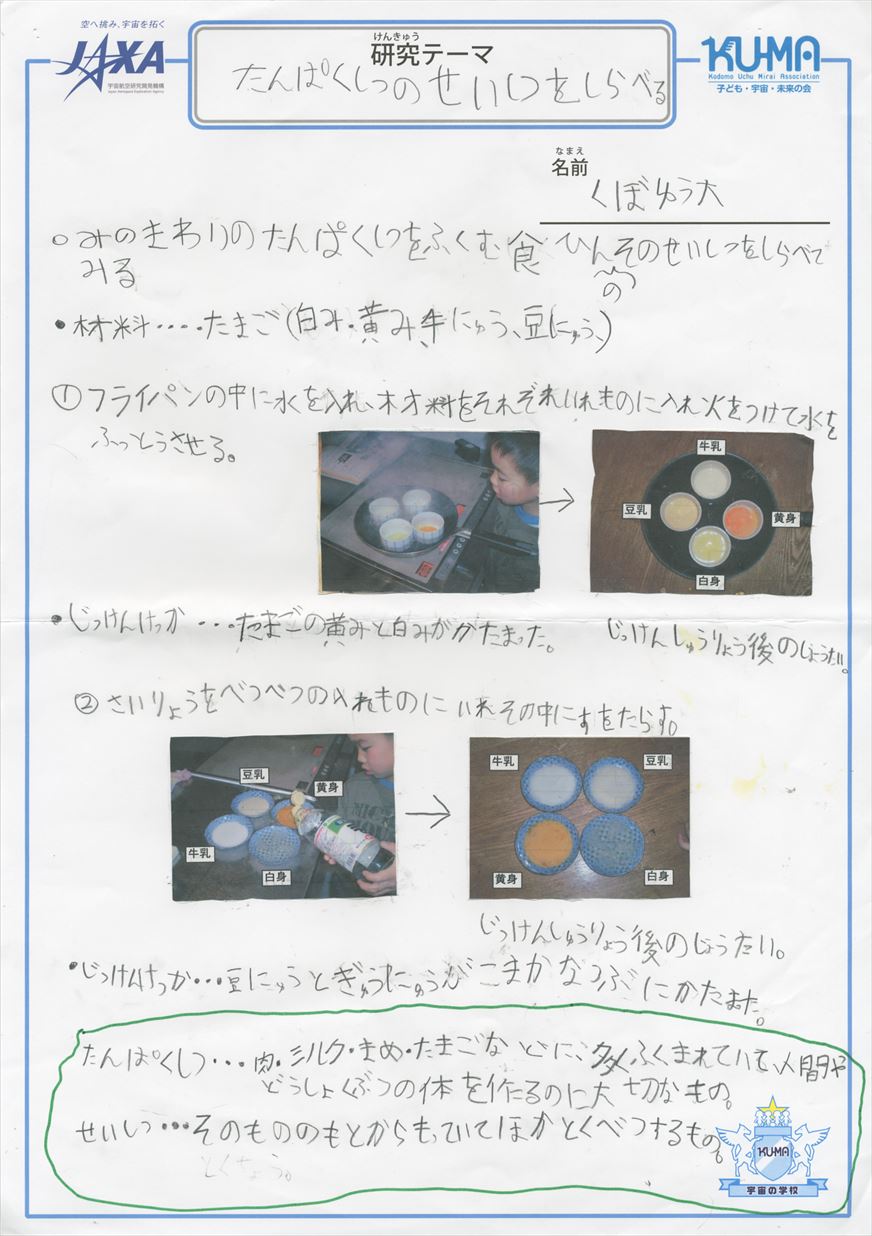 空へ挑み、宇宙を拓く
JAXA
宇宙航空研究開発機構
Japan Aerospace Exploration Agency
けんきゅう
研究テーマ
たんぱくしつのせいしつをしらべる
KU-MA
Kodomo Uchu Mirai Association
子ども・宇宙・未来の会
なまえ
名前
くぼゆう大
○みのまわりのたんぱくしつをふくむ食ひんそのせいしつをしらべて
の
みる
・材料・・・・たまご(白み・黄み牛にゅう、豆にゅう、)
①フライパンの中に水を入れ、材料をそれぞれいれものに入れ火をつけて水を
ふっとうさせる。
牛乳
豆乳
黄身
白身
・じっけんけっか・・・たまごの黄みと白みががたまった。
じっけんしゅうりょう後のじょうたい。
②ざいりょうをべつべつの入れものにいれその中にすをたらす。
豆乳
黄身
牛乳
白身
牛乳
豆乳
黄身
白身
じっけんしゅうりょう後のじょうたい。
・じっけんけっか・・・豆にゅうとぎゅうにゅうがこまかなつぶにかたまた。
たんぱくしつ・・・肉・ミルク・まめ・たまごなどに、多くふくまれていて、人間や
どうしょくぶつの体を作るのに大切なもの。
せいしつ・・・そのもののもとからもっていてほかとくべつするもの。
とくちょう。
KU-MA
宇宙の学校